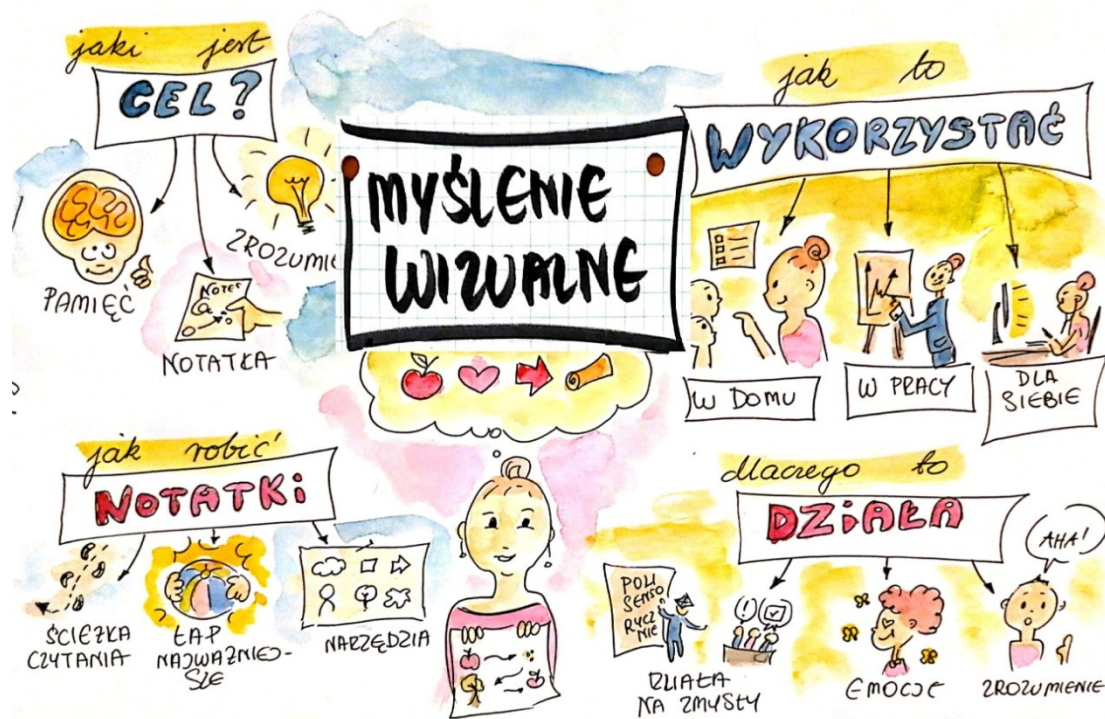 jaki jest
CEL?
PAMIĘĆ
NOTES
NOTATKA
ZROZUMIE
MYŚLENIE
WIZUALNE
jak to
WYKORZYSTAĆ
W DOMU
W PRACY
DLA
SIEBIE
jak robić
NOTATKI
ŚCIEŻKA
CZYTANIA
ŁAP
NAJWAŻNIEJ-
SZE
NARZĘDZIA
dlaczego to
DZIAŁA
POLI
SENSO
RYCZ
NIE
DZIAŁA
NA ZMYSŁY
EMOCJE
AHA!
ZROZUMIENIE